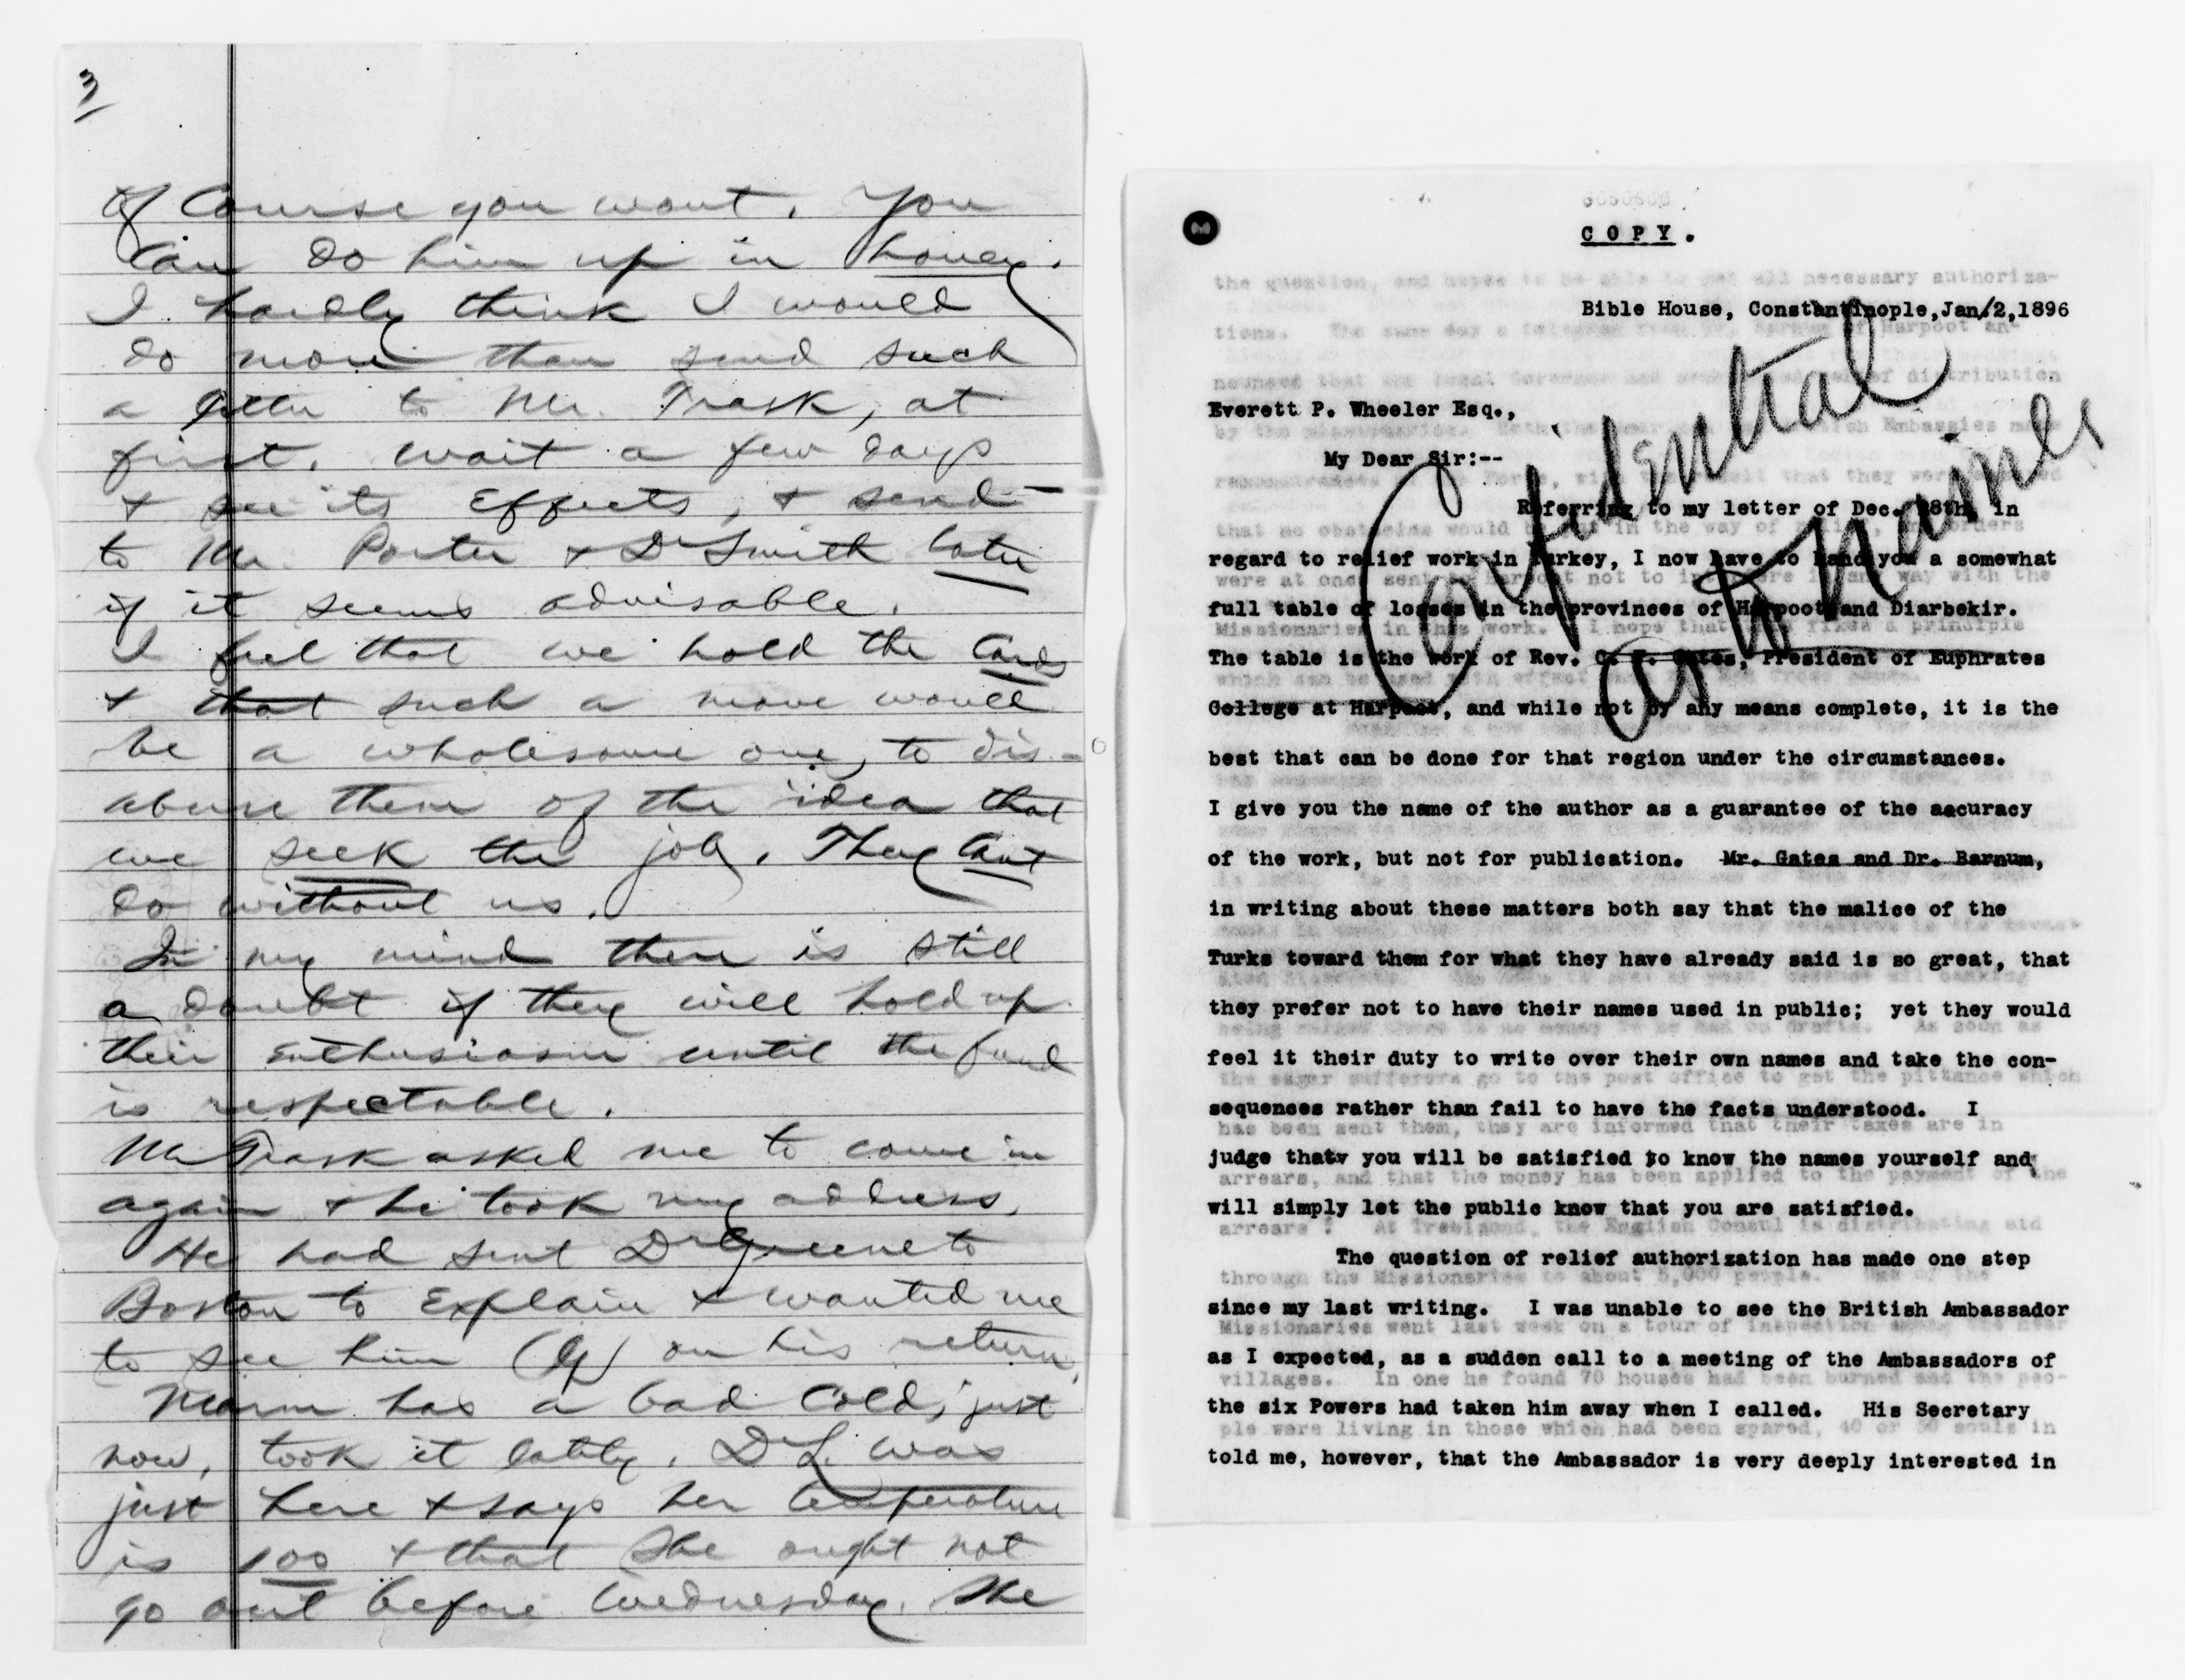 3
Of Course you wont. You
Can do him up in honey.
I hardly think I would
do more than send such
a letter to Mr. Trask, at
first. wait a few days
& see its Effects, & send
to Mr. Porter & Dr Smith later
if it seems advisable.
I feel that we hold the Cards
& that such a move would
be a wholesome one, to dis-
abuse them of the idea that
we seek the job. They Cant
do without us.
In my mind there is still
a doubt if they will hold up
their Enthusiasm until the fund
is respectable.
Mr Trask asked me to come in
again & he took my address.
He had sent Dr Greene to
Boston to Explain & wanted me
to see him (G) on his return.
Marm has a bad Cold, just
now, took it lately. Dr L. was
just here & says her temperature
is 100 & that She ought not
go out before Wednesday. She
COPY.
Bible House, Constantinople, Jan/2,1896
Everett P. Wheeler Esq.,
My Dear Sir:--
Confidential
as to names
Referring to my letter of Dec. 28th, in
regard to relief work in Turkey, I now have to hand you a somewhat
full table of losses in the provinces of Harpoot and Diarbekir.
The table is the work of Rev. C. F. Gates, President of Euphrates
College at Harpoot, and while not by any means complete, it is the
best that can be done for that region under the circumstances.
I give you the name of the author as a guarantee of the accuracy
of the work, but not for publication. Mr. Gates and Dr. Barnum,
in writing about these matters both say that the malice of the
Turks toward them for what they have already said is so great, that
they prefer not to have their names used in public; yet they would
feel it their duty to write over their own names and take the con-
sequences rather than fail to have the facts understood. I
judge that you will be satisfied to know the names yourself and
will simply let the public know that you are satisfied.
The question of relief authorization has made one step
since my last writing. I was unable to see the British Ambassador
as I expected, as a sudden call to a meeting of the Ambassadors of
the six Powers had taken him away when I called. His Secretary
told me, however, that the Ambassador is very deeply interested in